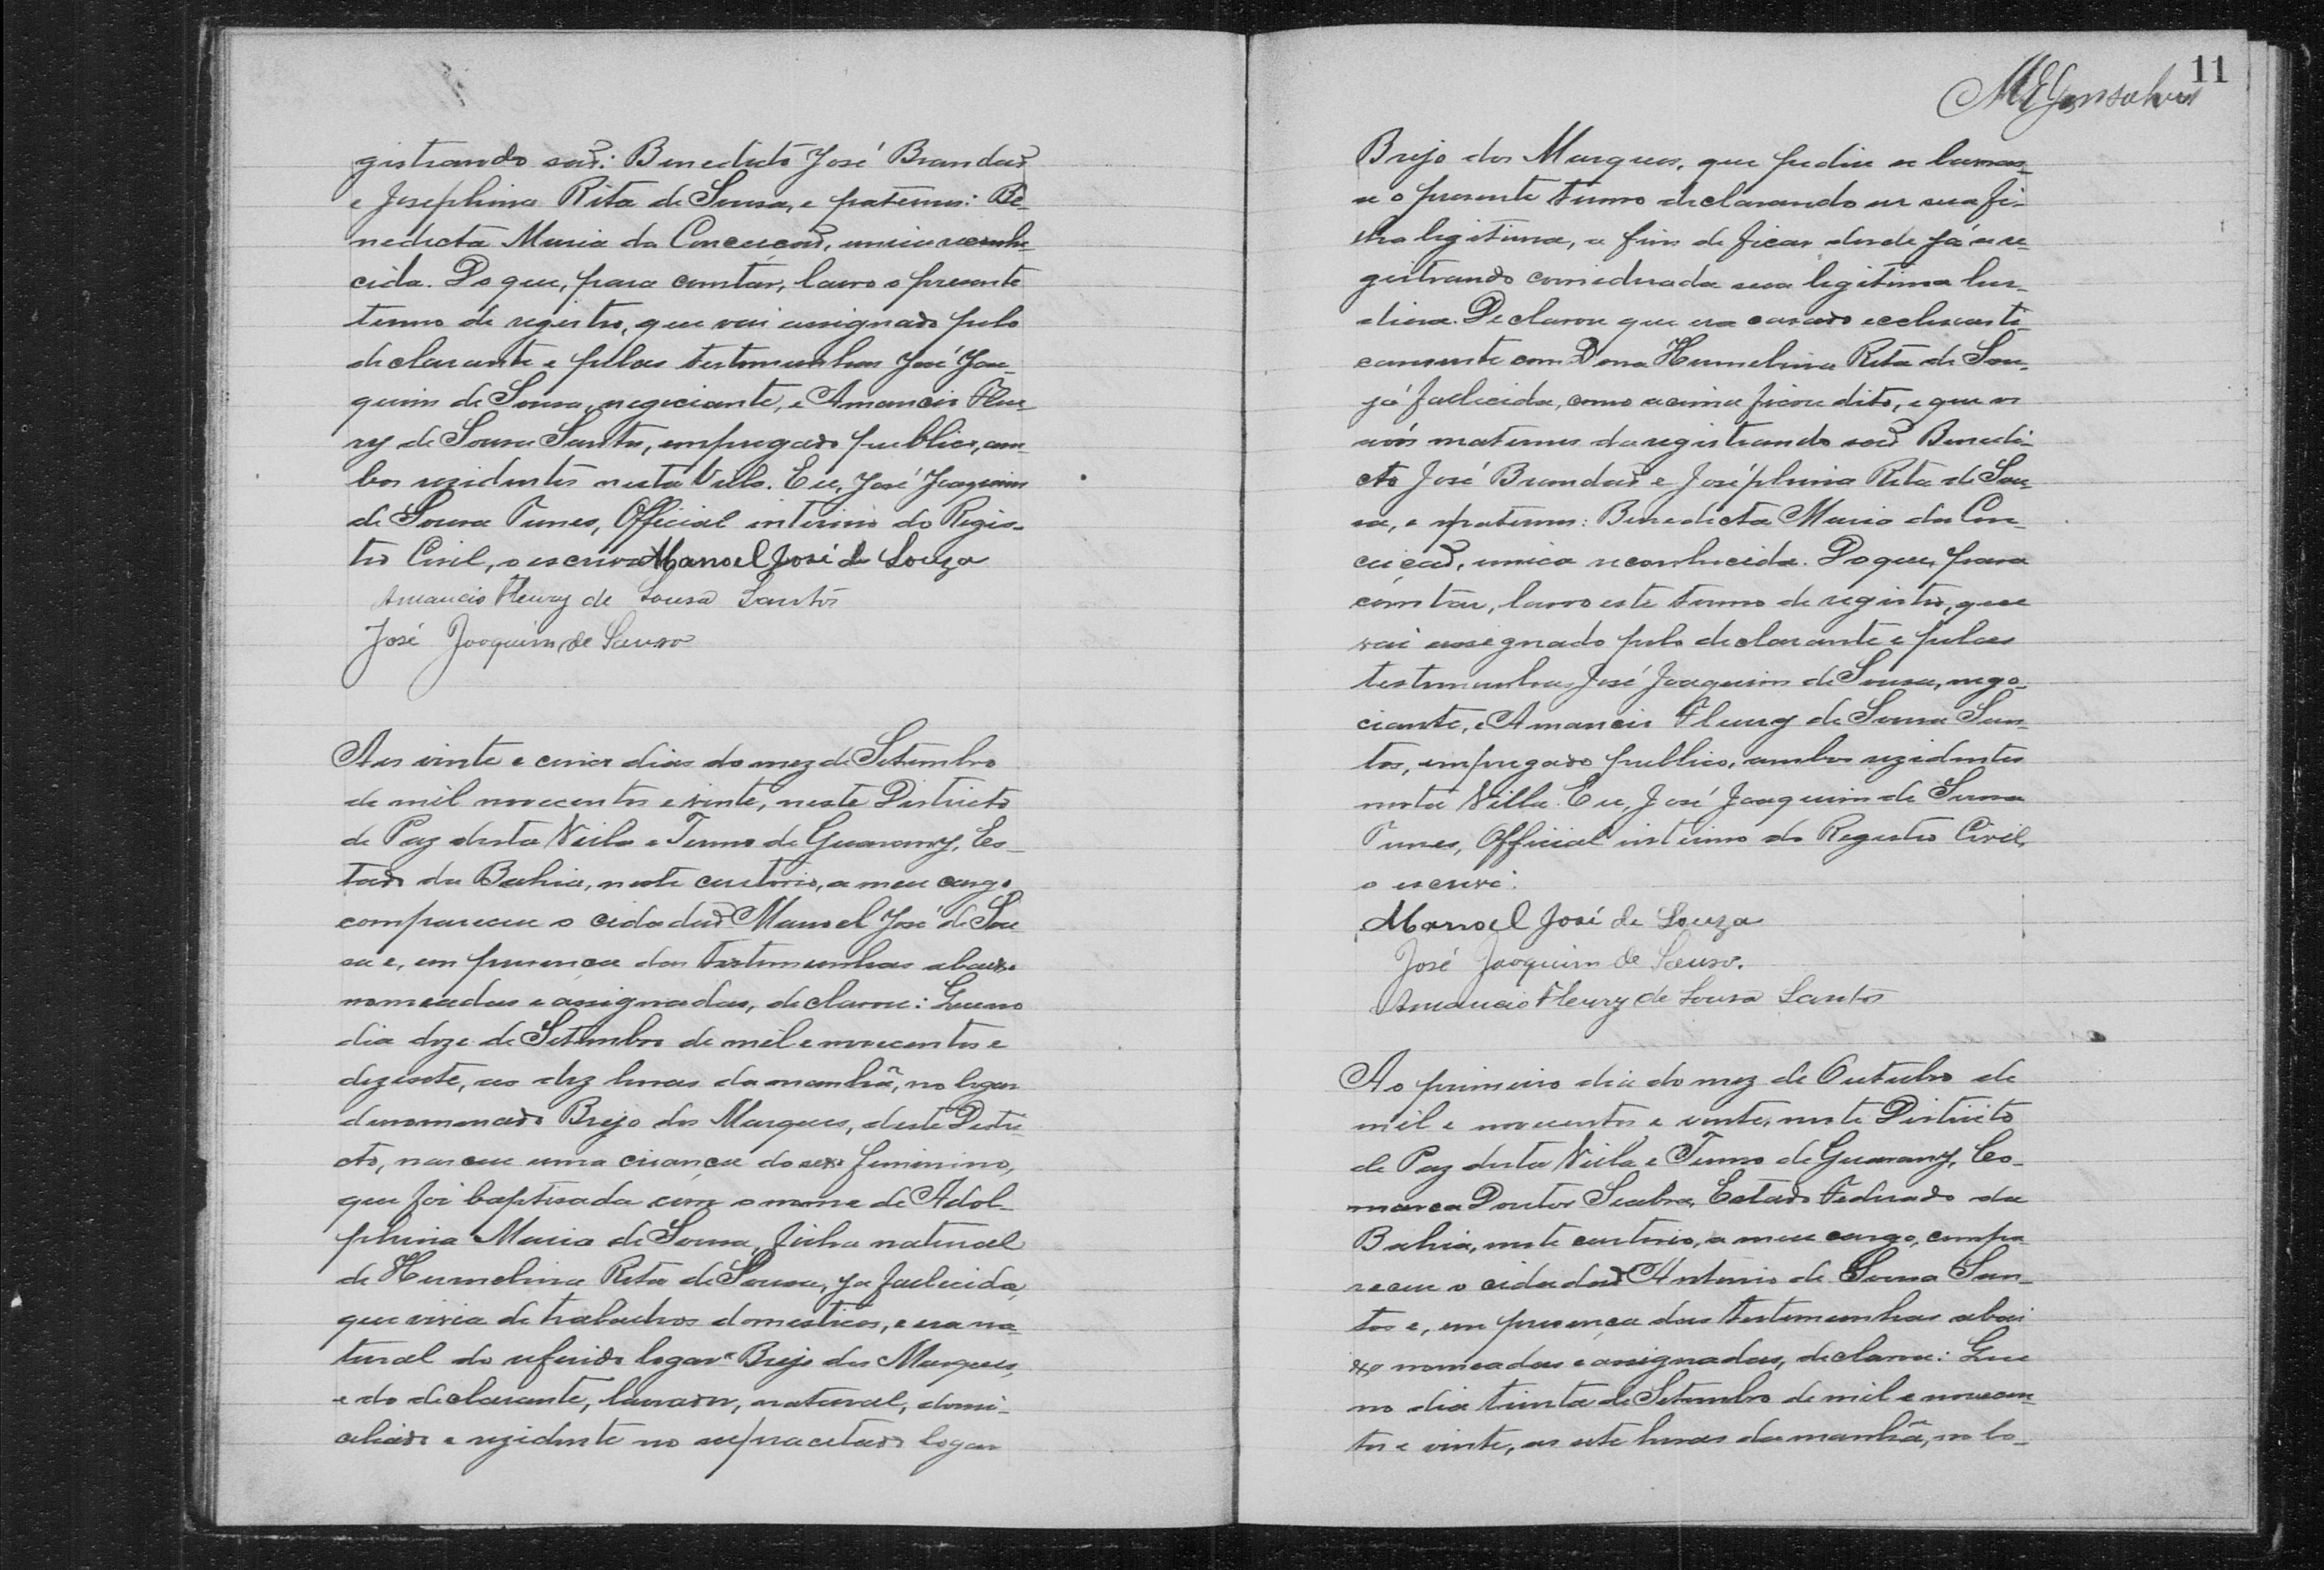 gistrando são: Benedicto José Brandão
e Josephina Rita de Sousa, e paternos: Be-
nedicta Maria da Conceição, unica reconhe-
cida. Do que, para constar, lavro o presente
termo de registro, que vai assignado pelo
declarante e pelas testemunhas José Joa-
quim de Sousa, negociante, e Amancio Fleu-
ry de Sousa Santos, empregado publico, am-
bos rezidentes nesta Villa. Eu, José Joaquim
de Sousa Tunes, Official interino do Regis-
tro Civil, o escrivi Manoel José de Souza
Amancio Fleury de Sousa Santos
José Joaquim de Souso
Aos vinte e cinco dias do mez de Setembro
de mil novecentos e vinte, neste Districto
de Paz desta Villa e Termo de Guarany, Es-
tado da Bahia, neste cartorio, a meu cargo
compareceu o cidadão Manoel José de Sou-
sa e, em presença das testemunhas abaixo
nomeadas e assignadas, declarou: Que no
dia doze de Setembro de mil e novecentos e
dezesete, as dez horas da manhã, no logar
denomenado Brejo dos Marques, deste Distri-
cto, nasceu uma criança do sexo feminino,
que foi baptisada com o nome de Adol-
phina Maria de Sousa, filha natural
de Hermelina Rita de Sousa, ja fallecida,
que vivia de trabalhos domesticos, e era na-
tural do referido logar "Brejo dos Marques,
e do declarante, lavrador, natural, domi-
ciliado e rezidente no supracitado logar
11
MEGonsalves
Brejo dos Marques, que pediu se lavras-
se o presente termo declarando ser sua fi-
lha legitima, a fim de ficar desde já a re-
gistrando considerada sua legitima her-
deira. Declarou que era casado ecclesiasti-
camente com Dona Hermelina Rita de Sou-
já fallecida, como acima ficou dito, e que os
avós maternos da registrando são Benedi-
cto José Brandão e Joséphina Rita de Sou-
sa, e paternos: Benedicta Maria da Con-
ceição, unica reconhecida. Do que, para
constar, lavro este termo de registro, que
vai assegnado pelo declarante e pelas
testemunhas José Joaquim de Sousa, nego-
ciante, e Amancio Fleury de Sousa San-
tos, empregado publico, ambos rezidentes
nesta Villa. Eu, José Joaquim de Sousa
Tunes, Official interino do Registro Civil,
o escrivi.
Manoel José de Souza
José Joaquim de Souso.
Amancio Fleury de Sousa Santos
Ao primeiro dia do mez de Outubro de
mil e novecentos e vinte, neste Districto
de Paz desta Villa e Termo de Guarany, Co-
marca Doutor Seabra, Estado Federado da
Bahia, neste cartorio, a meu cargo, compa-
receu o cidadão Antonio de Sousa San-
tos e, em presença das testemunhas abai
xo nomeadas e assignadas, declarou: Que
no dia trinta de Setembro de mil e novecen-
tos e vinte, as sete horas da manhã, no lo-